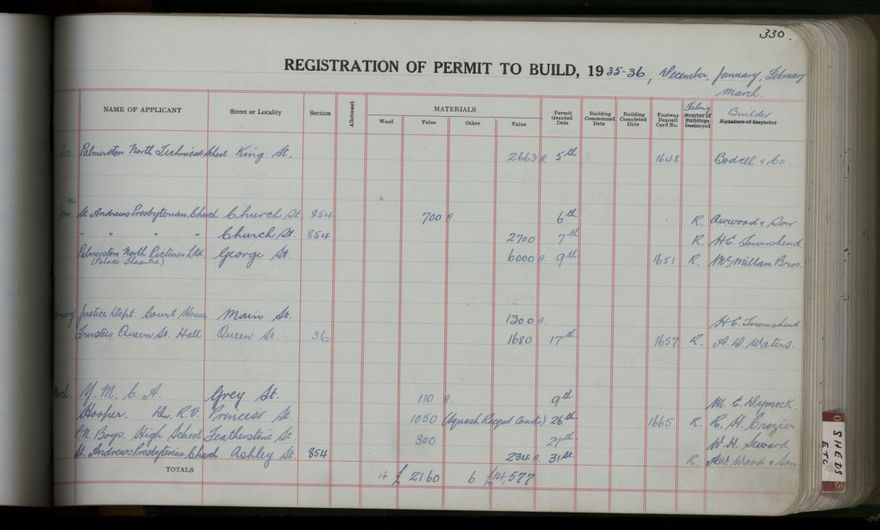 330.
REGISTRATION OF PERMIT TO BUILD, 1935-36, December, January, February
March.
NAME OF APPLICANT Street or Locality Section Allotment MATERIALS Wood Value Other Value Permit Granted Date Building Commenced Date Building Completed Date Footway Deposit Card No. Number of Buildings Destroyed Builder Signature of Inspector
Dec. Palmerston North Technical School King St. 2663 A. 5th 1648 Bodell & Co.
Jan. St Andrews Presbyterian Church Church St. 854 700 A. 6th R. Awwood & Son
" " " " Church St. 854 2700 7th R. H.E. Townshend
Palmerston North Pictures Ltd. George St. 6000 A 9th 1651 R. McMillan Bros.
(Palace Theatre)
Justice Dept. Court House Main St. 1300 A H.E. Townshend
Trustees Queen St. Hall Queen St 36 1680 17th 1657 R. A. D. Waters.
March Y. M. C. A. Grey St. 110 A. 9th M. E. Dymock.
Hooper. Dr. R.V. Princess St 1050 (Squash Racquet Courts) 26th 1665 R. R. H. Crozier
P.N. Boys. High School Featherston St. 300 27th W. H. Seward
St. Andrews Presbyterian Church Ashley St. 854 234 A. 31st. R. A.W. Wood & Son
TOTALS 4 £ 2160 6 £14,577
SHEDS
ETC